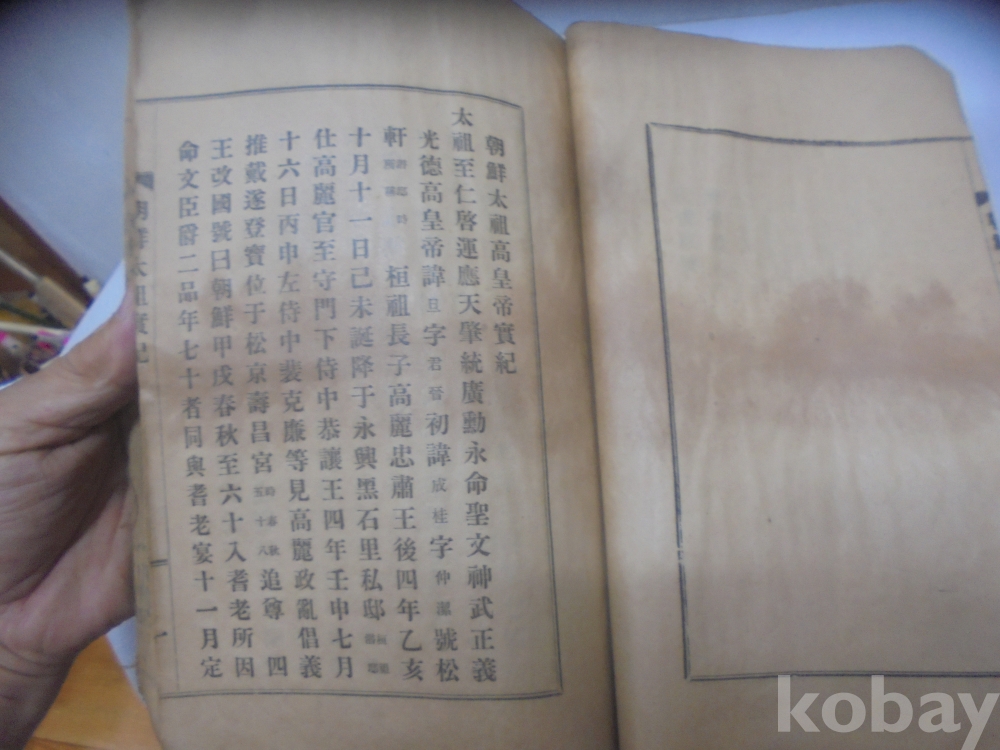 朝鮮太祖高皇帝實紀
太祖至仁啓運應天肇統廣勳永命聖文神武正義
光德高皇帝諱旦字君晉初諱成桂字仲潔號松
軒 桓祖長子高麗忠肅王後四年乙亥
十月十一日己未誕降于永興黑石里私邸
仕高麗官至守門下侍中恭讓王四年壬申七月
十六日丙申左侍中裴克廉等見高麗政亂倡義
推戴遂登寶位于松京壽昌宮時春秋五十八追尊 四
王改國號曰朝鮮甲戌春秋至六十入耆老所因
命文臣爵二品年七十者同與耆老宴十一月定
朝鮮太祖實紀
一
kobay